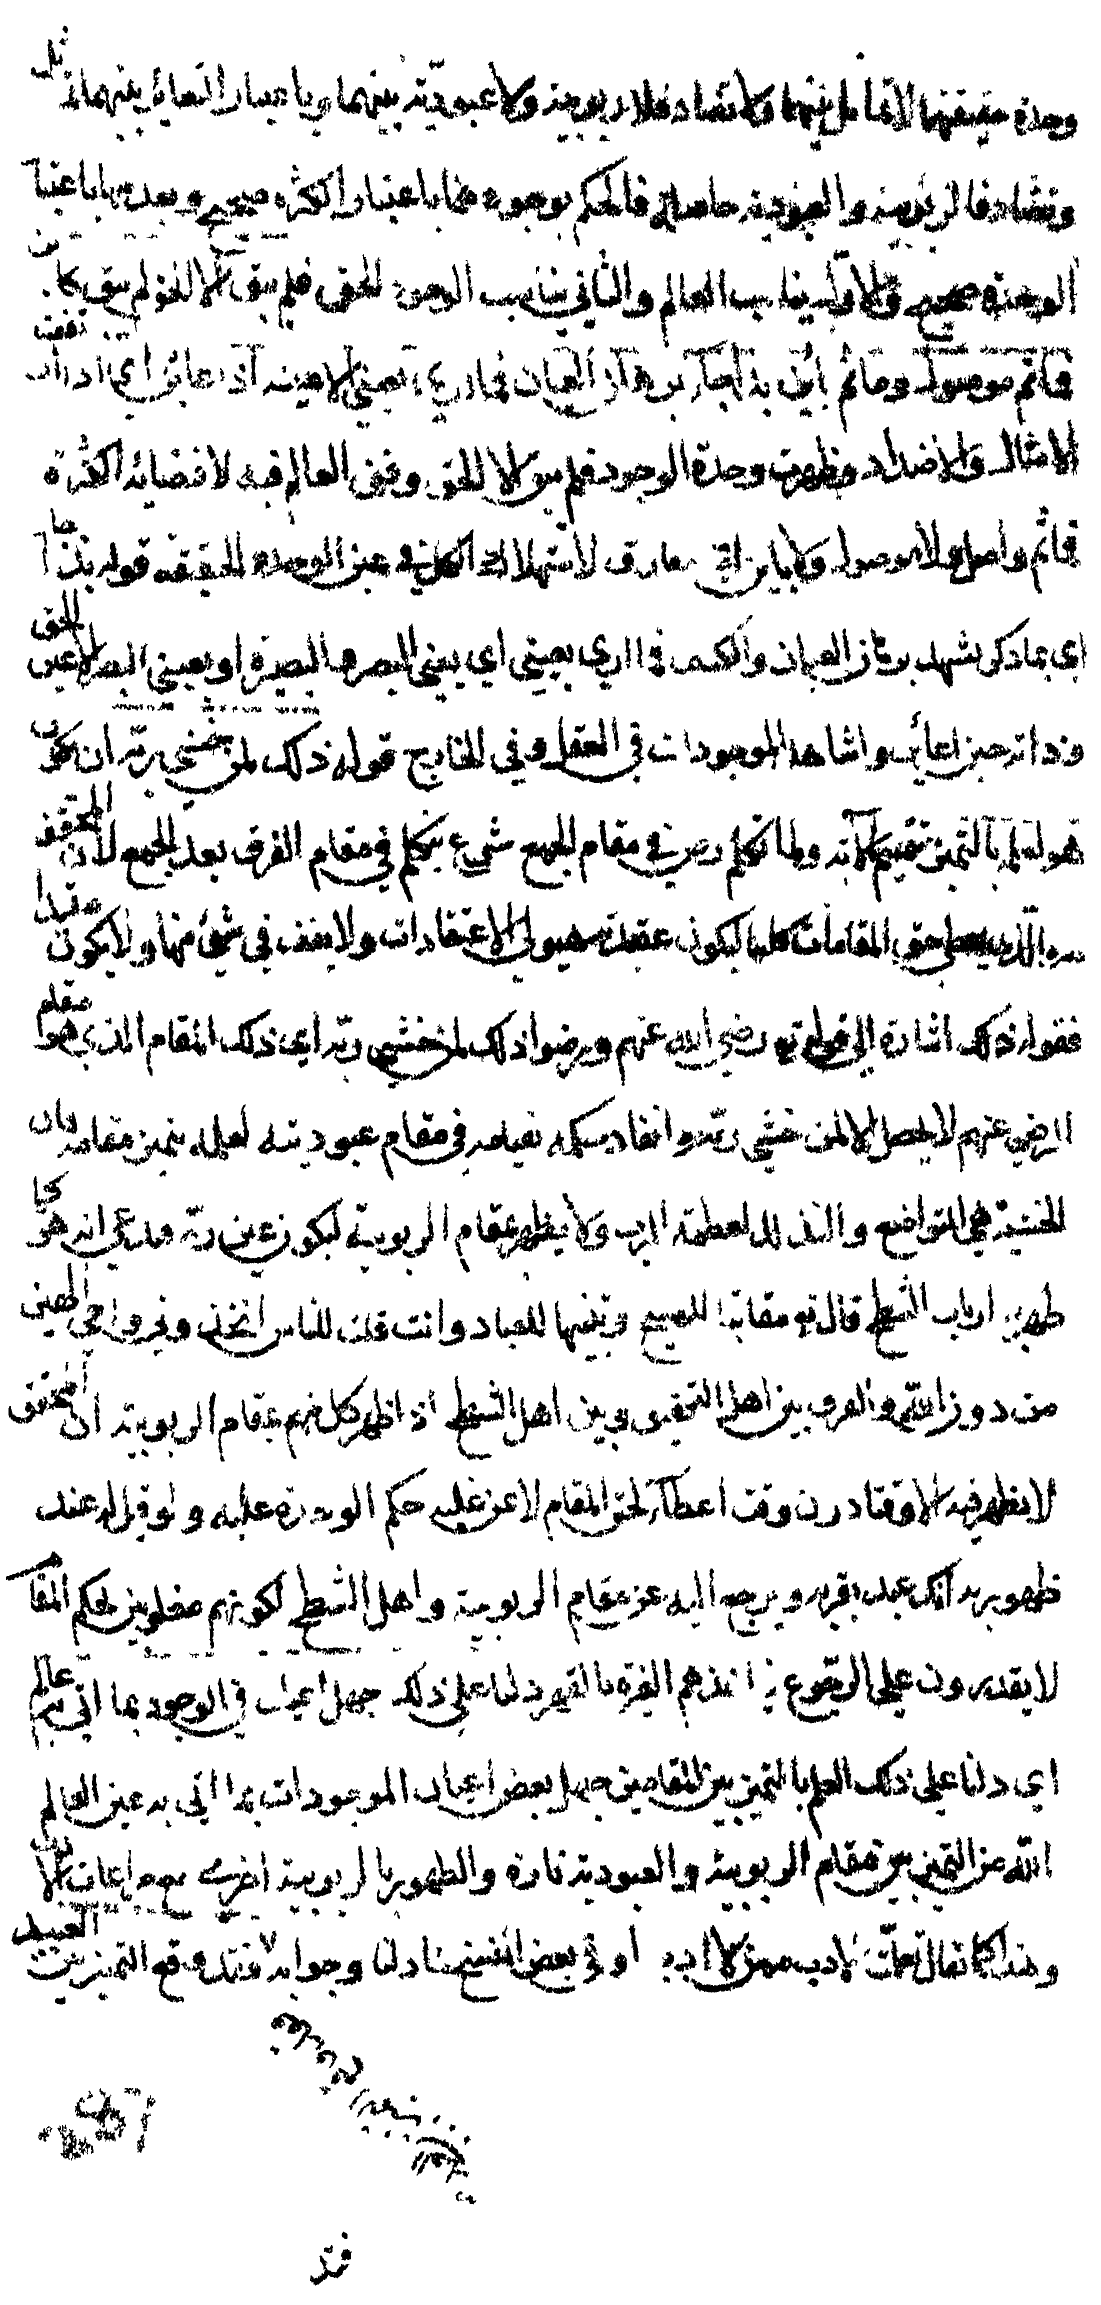 وحدة حقيقتها لا تماثل بينهما ولا تضاد فلا ربوبية ولا عبودية بينهما وباعتبار التغاير بينهما تماثل
وتضاد فالربوبية والعبودية حاصلة فالحكم بوجودهما باعتبار الكثرة صحيح وبعدمها باعتبار
الوحدة صحيح والاول يناسب العالم والثاني يناسب الوجود الحق فلم يبق الا الحق لم يبق كائن
فما ثم موصول وما ثم بائن بذا جاء برهان العيان فما ارى بعيني الا عينه اذ اعاين اي اذا ارتفعت
الامثال والاضداد وظهرت وحدة الوجود فلم يبق الا الحق وفنى العالم فيه لاقتضائه الكثرة
فما ثم واصل ولا موصول ولا باين اي مفارق لاستهلاك الكل في عين الوحدة الحقيقة قوله بذا جا
اي بما ذكر شهد برهان العيان والكشف فما ارى بعيني اي بعيني البصر والبصيرة او بعيني البصر الا عين الحق
وذاته حين اعاين واشاهد الموجودات في العقل وفي الخارج قوله ذلك لمن خشي ربه ان يكون
هو لعلمه بالتميز تتميم كلامه ولما تكلم رض في مقام الجمع شرع يتكلم في مقام الفرق بعد الجمع لان المحقق
هو الذي يعطي حق المقامات كلها ليكون عقيدته هيولى الاعتقادات ولا يقف في شيء منها ولا يكون مقيدا
فقوله ذلك اشارة الى قوله تع رضي الله عنهم ورضوا ذلك لمن خشي ربه اي ذلك المقام الذي هو مقام
الرضى عنهم لا يحصل الا لمن خشي ربه وانقاد لحكمه بقيامه في مقام عبوديته لعلمه بتميز مقامه فان
الخشية هي التواضع والتذلل لعظمة الرب ولا يظهر بمقام الربوبية ليكون عين ربه ويدعي انه هو كما
ظهر به ارباب الشطح قال تع معاتبا للمسيح وتنبيها للعباد وانت قلت للناس اتخذوني وامي الهين
من دون الله والفرق بين اهل التحقيق وبين اهل الشطح اذا ظهر كل منهم بمقام الربوبية ان المحقق
لا يظهر فيه الا وقتا دون وقت اعطاء لحق المقام لا عن غلبة حكم الوحدة عليه ولو قيل له عند
ظهوره به انك عبد يقربه ويرجع اليه عن مقام الربوبية واهل الشطح لكونهم مغلوبين لحكم المقام
لا يقدرون على الرجوع فيأخذهم الغيرة بالقهر دلنا على ذلك جهل اعيان في الوجود بما اتى به عالم
اي دلنا على ذلك العلم بالتميز بين المقامين جهل بعض اعيان الموجودات بما اتى به عين العالم
بالله من التميز بين مقام الربوبية والعبودية تارة والظهور بالربوبية اخرى مع مراعات الادب
وهذا كما يقال تعلمت الادب ممن لا ادب له او في بعض النسخ دلنا وجوابه فقد وقع التميز بين العبيد
فقد